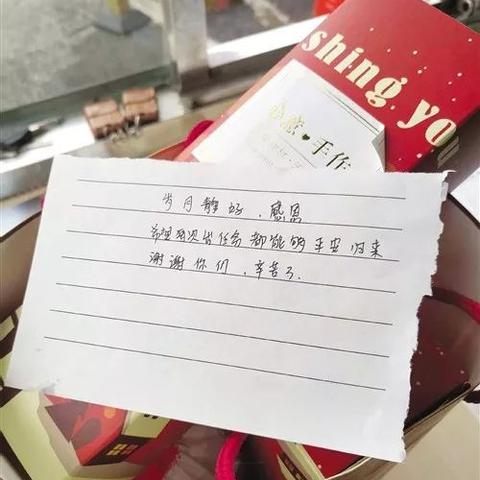 shing you
心意·手作
岁月静好、感恩
希望每次出任务都能够平安归来
谢谢你们、辛苦了.